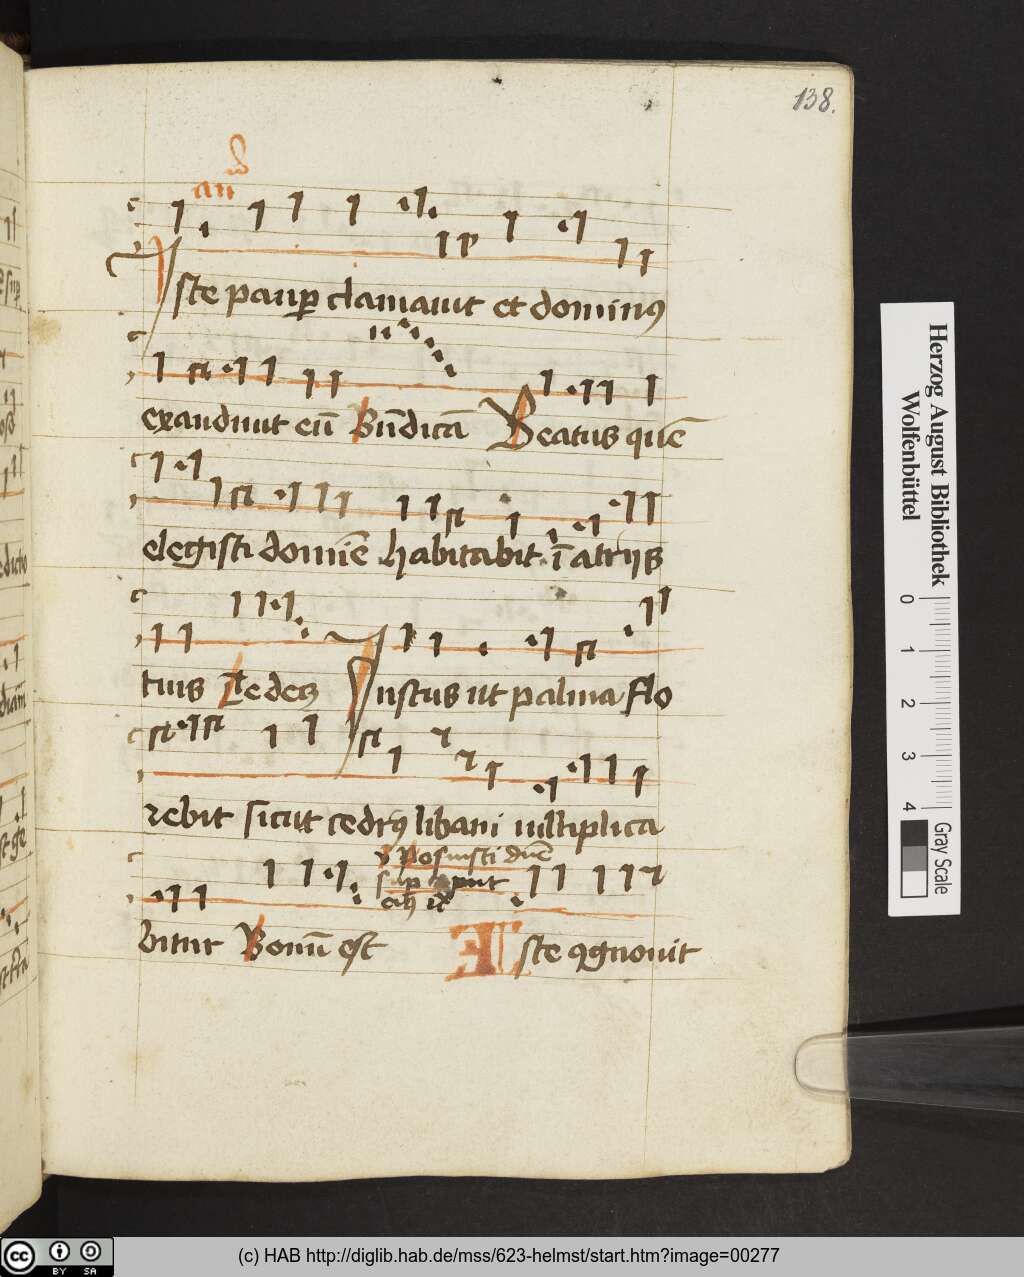 138.
an
Iste paup clamauit et dominus
exaudiuit eū Bn̄dicā Beatus quē
elegisti domīe habitabit ī atrijs
tuis Te decꝫ Justus ut palma flo
rebit sicut cedrꝰ libani m̄ltiplica
v Posuisti dn̄e
sup caput
eiꝰ
bitur Bonū est Iste ꝯgnouit
Herzog August Bibliothek
Wolfenbüttel
0 1 2 3 4
Gray Scale
cc BY SA
(c) HAB http://diglib.hab.de/mss/623-helmst/start.htm?image=00277